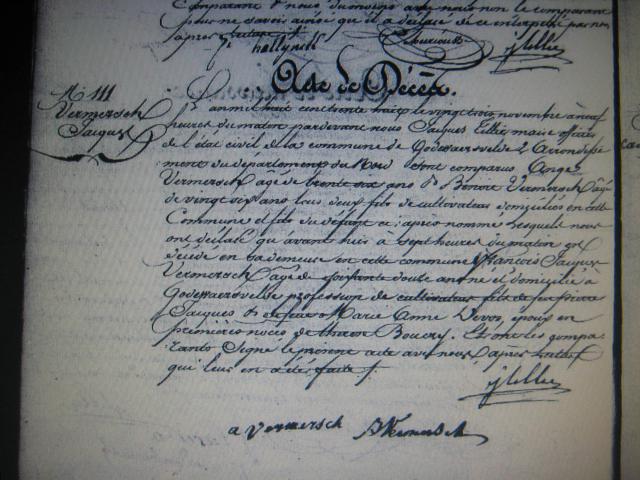 comparant
pour ne savoir ainsi qu'il a déclaré de ce interpellé par nous
après lecture
hollynck
Acte de Décès.
N. 111
Vermersch
Jacques
L'an mil huit cent trente huit le vingt trois novembre à neuf
heures du matin pardevant nous Jacques maire officier
de l'état civil de la commune de Godewaersvelde 2 Arrondisse
ment du département du Nord sont comparus Ange
Vermersch âgé de trente six ans & Benoit Vermersch âgé
de vingt six ans tous deux fils de cultivateur domiciliés en cette
Commune et fils du défunt ci après nommé lesquels nous
ont déclaré qu'avant hier à sept heures du matin est
décédé en sa demeure en cette commune François Jacques
Vermersch âgé de soixante douze ans né et domicilié à
Godewaersvelde profession de cultivateur fils de feu Pierre
Jacques & de feue Marie Anne Devos, époux en
premières noces de therese Boucry. Et ont les compa
rants signé le présent acte avec nous après lecture
qui leur en a été faite
a vermersch B Vermersch